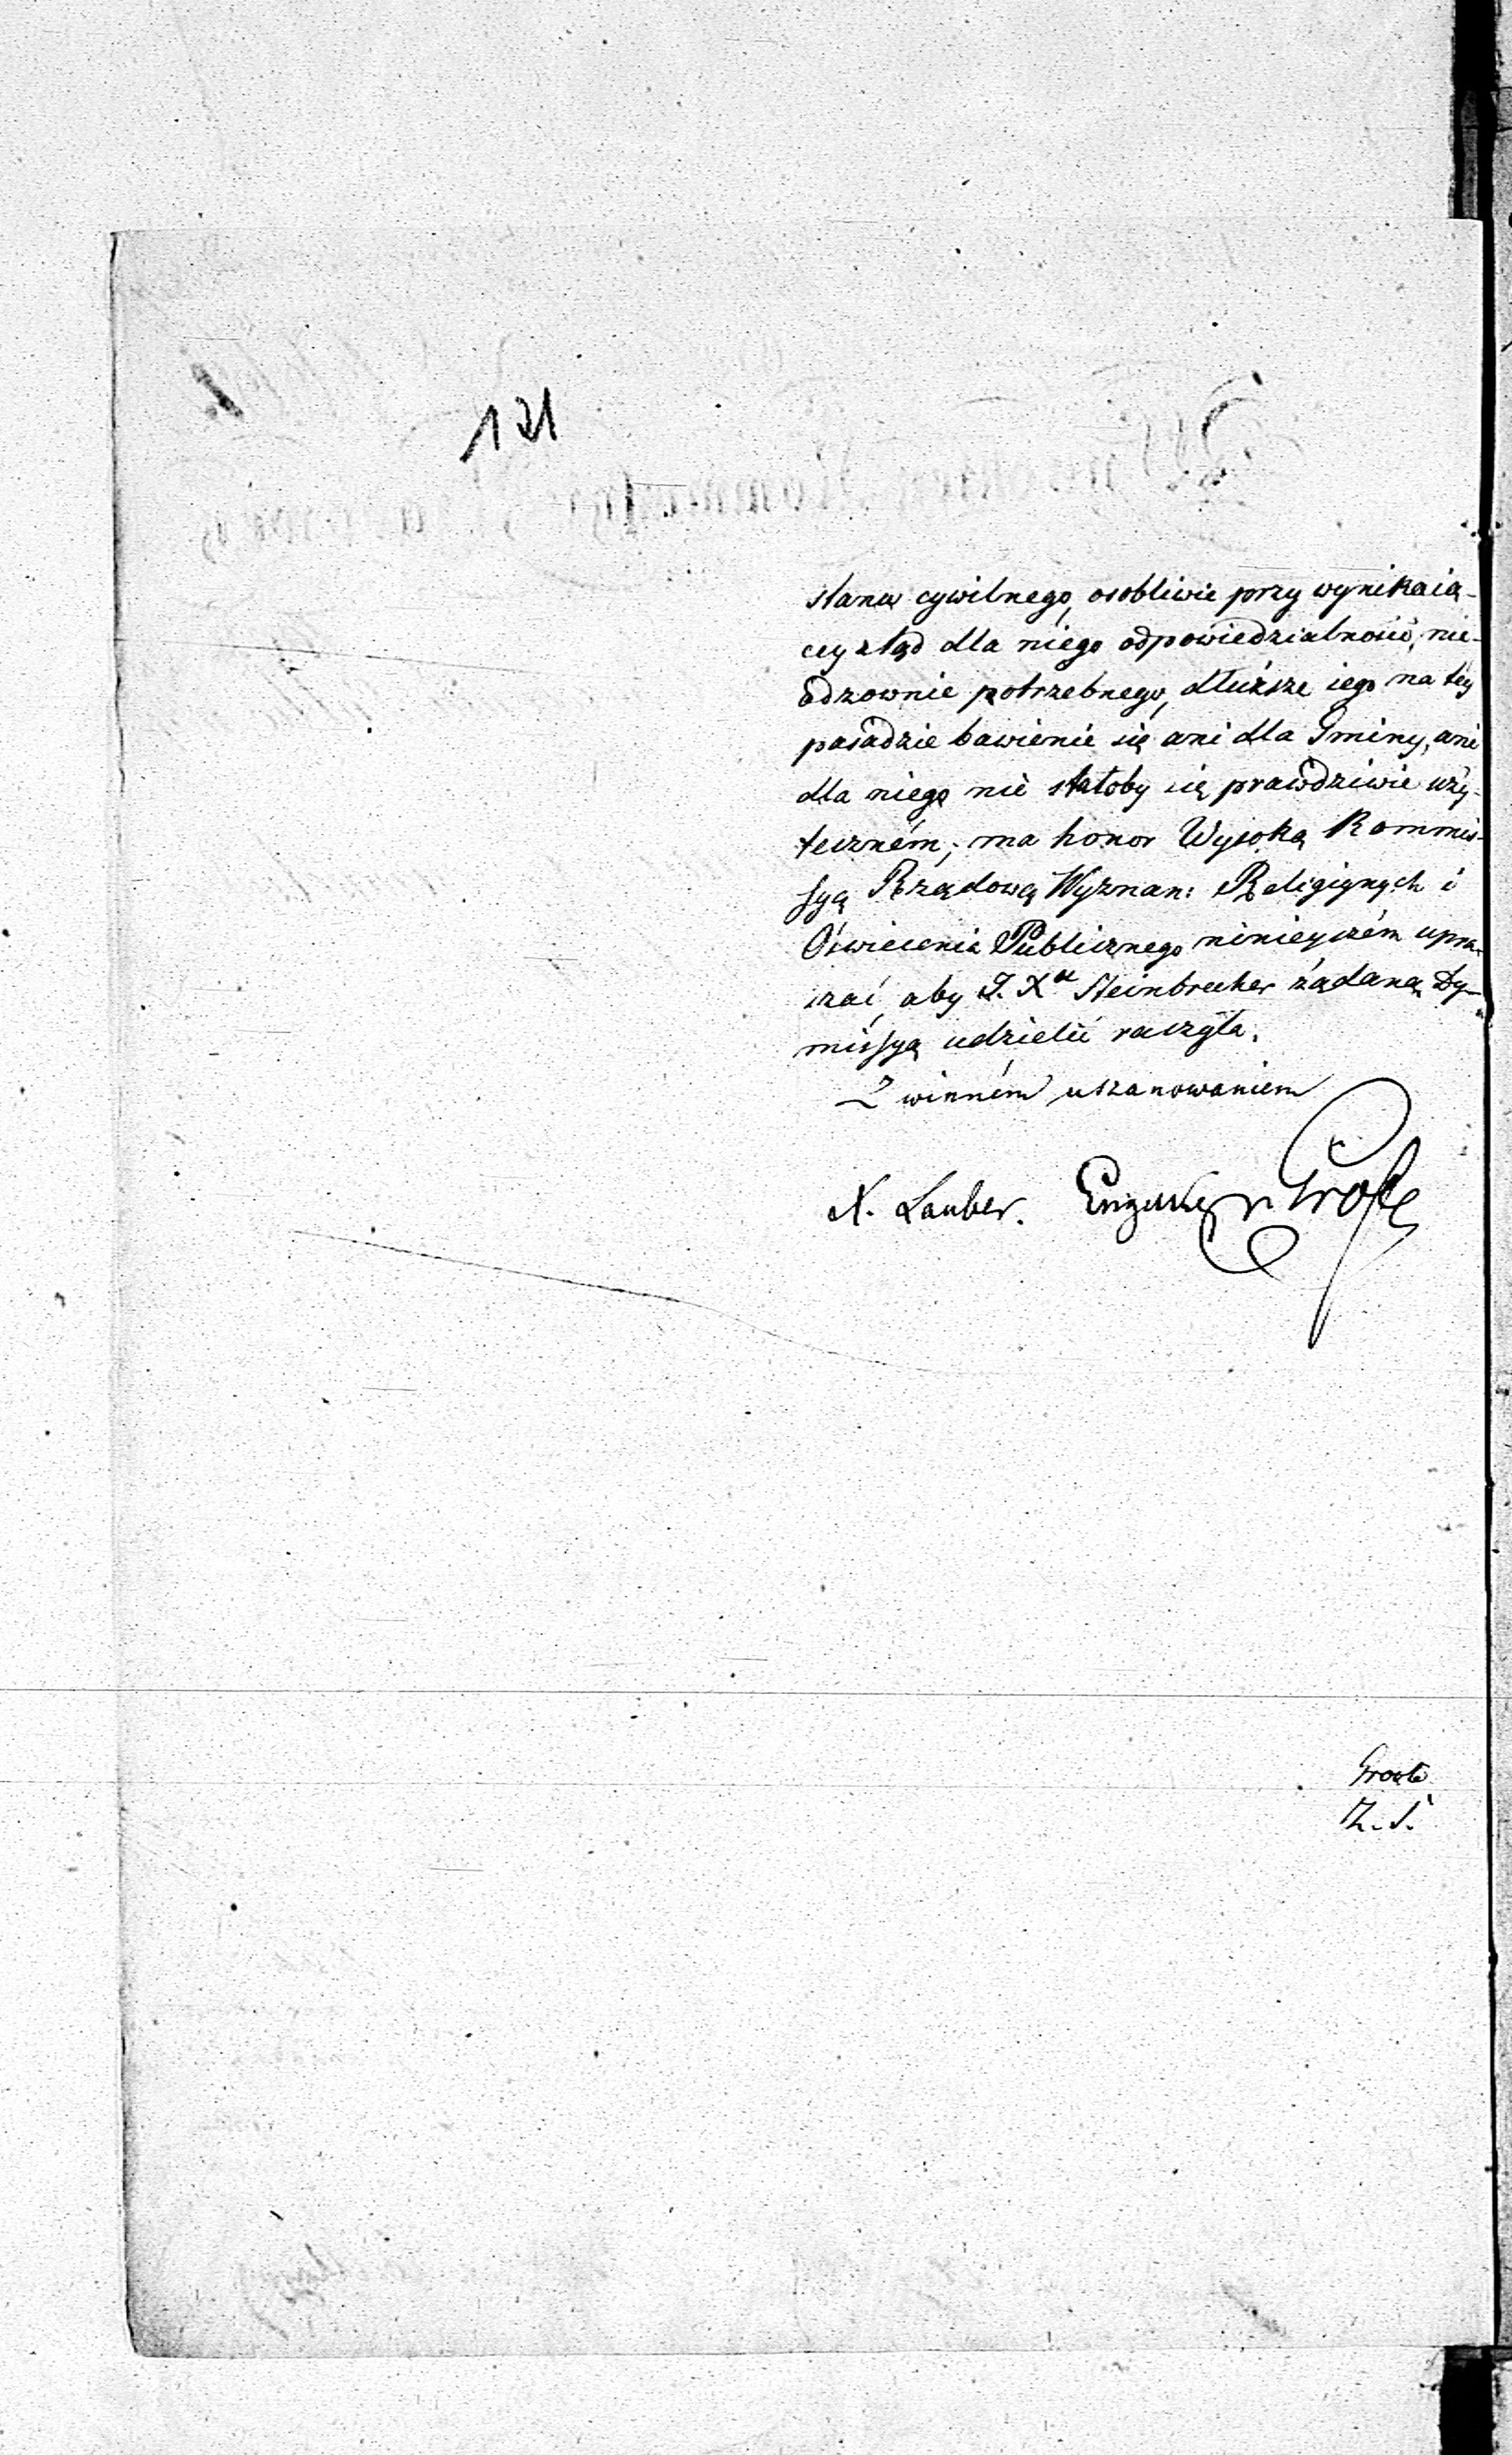 121
stanu cywilnego, osobliwie przy wynikaią-
cey ztąd dla niego odpowiedzialności, nie-
odzownie potrzebnego, dłuższe iego na tey
posadzie bawienie się ani dla Gminy, ani
dla niego nie stałoby się prawdziwie uży-
teczném; ma honor Wysoką Kommis-
syą Rządową Wyznan: Religiynych i
Oświecenia Publicznego ninieyszém upra-
szać, aby J. Xu Steinbrecher żądaną Dy-
missyą udzielić raczyła.
Z winném uszanowaniem
N. Lauber.
Groote